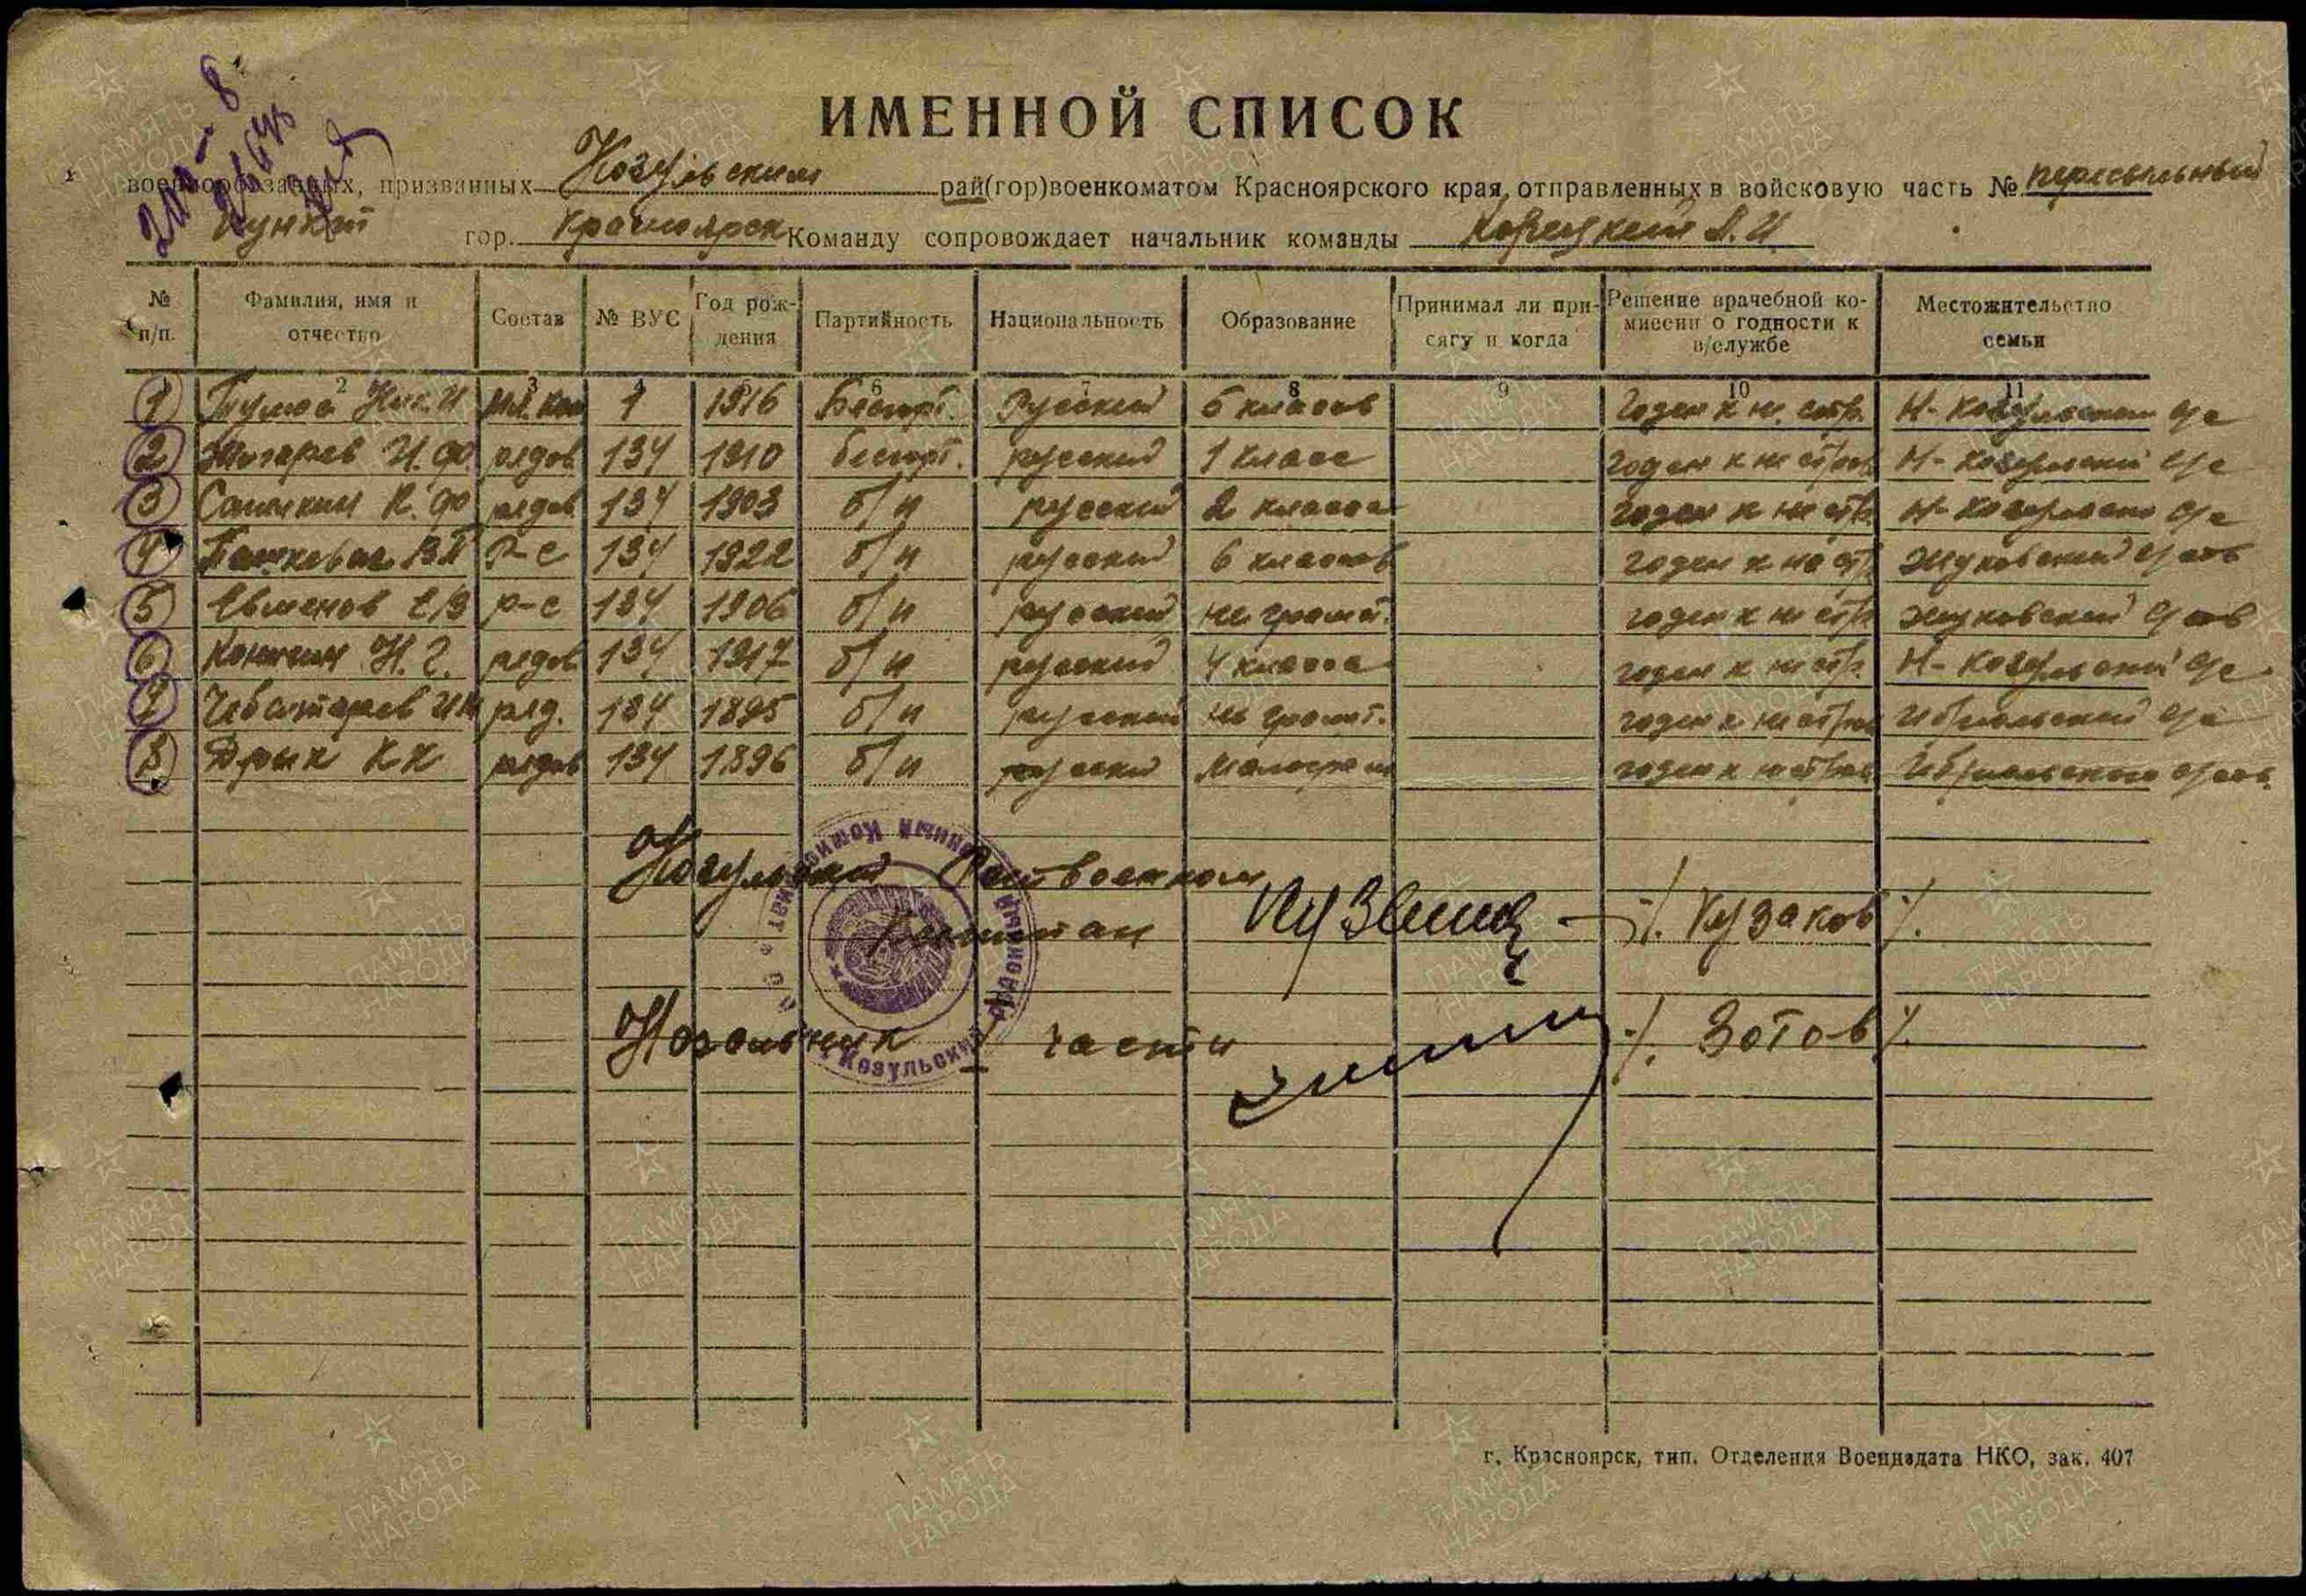 ИМЕННОЙ СПИСОК
военнообязанных, призванных Козульским рай(гор)военкоматом Красноярского края, отправленных в войсковую часть № пересыльный
пункт гор. Красноярск Команду сопровождает начальник команды
№ п/п. Фамилия, имя и отчество Состав № ВУС Год рождения Партийность Национальность Образование Принимал ли присягу и когда Решение врачебной комиссии о годности к в/службе Местожительство семьи
2 3 4 5 6 7 8 9 10 11
1 Ник. И мл. ком 1 1916 Беспарт. Русский классов годен к не стр. Н-Козульский с/с
2 И. Ф. рядов 134 1910 беспарт. русский 1 класс годен к не строев Н-Козульский с/с
3 К. Ф. рядов 134 1903 б/п русский 2 класса годен к не стр. Н-Козульский с/с
4 В П р-с 134 1922 б/п русский 6 классов годен к не стр. Жуковский с/сов
5 Евменов р-с 134 1906 б/п русский не грамот. годен к не стр. Жуковский с/сов
6 Н. Г. рядов 134 1917 б/п русский 4 класса годен к не стр. Н-Козульский с/с
7 Чеботарев И ряд. 134 1895 б/п русский не грамот. годен к не строев с/с
8 Дрык К К рядов 134 1896 б/п русский малограм годен к не строев с/сов.
Козульский Райвоенком
Капитан /. Кузаков /.
Начальник 1 части /. Зотов /.
Козульский
г. Красноярск, тип. Отделения Воениздата НКО, зак. 407
ПАМЯТЬ НАРОДА